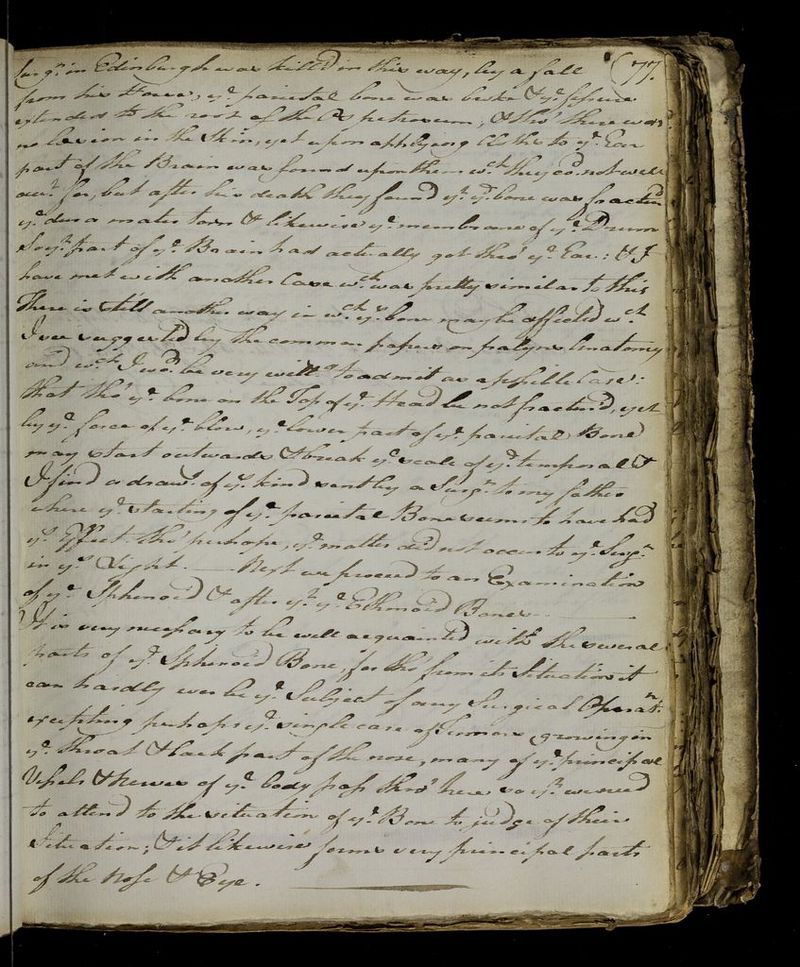 Surgn. in Edinburgh was killed in this way, by a fall (77.
from his Horse, ye. parietal bone was broke & ye. fissure
extended to the root of the Os petrosum, & tho' there was
no lesion in the Skin, yet upon applying Cloths to ye. Ear
part of the Brain was found upon them wch. they cd. not well
acct. for, but after his death they found yt. ye. bone was fractur'd
ye. dura mater torn & likewise ye. membrane of ye. Drum
So yt. part of ye. Brain had actually got thro' ye. Ear: & I
have met with another Case wch. was pretty similar to this
There is still another way in wch. ye. bone may be affected wch.
I see suggested by the common papers on Anatomy
and wch. I wod. be very willg. to admit as a possible Case:
that tho' ye. bone on the Top of ye. Head be not fractur'd, yet
by ye. force of ye. blow, ye. lower part of ye. parietal Bone
may start outwards & break ye. scale of ye. temporal &
I find a drawg. of ye. kind sent by a Surgn. to my father
where ye. starting of ye. parietal Bone seems to have had
ye. Effect tho' perhaps, ye. matter did not occur to ye. Surgn.
in ye. Light. — Next we proceed to an Examination
of ye. Sphenoid & after yt. ye. Ethmoid Bones —
It is very necessary to be well acquainted with the several
parts of ye. Sphenoid Bone, for tho' from its Situation it
can hardly ever be ye. Subject of any Surgical Operatn.
excepting perhaps ye. single case of Tumors growing in
ye. Throat & back part of the nose, many of ye. principal
Vessels & Nerves of ye. body pass thro' here so yt. we need
to attend to the situation of ye. Bone to judge of their
Situation; & it likewise forms very principal parts
of the Nose & Eye.